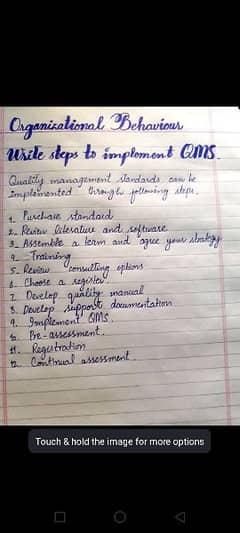 Organizational Behaviour
Write steps to implement QMS.
Quality management standards can be
implemented through following steps.
1. Purchase standard
2. Review literature and software
3. Assemble a team and agree your strategy
4. Training
5. Review consulting options
6. Choose a register.
7. Develop quality manual
8. Develop support documentation
9. Implement QMS
10. Pre-assessment.
11. Registration
12. Continual assessment
Touch & hold the image for more options